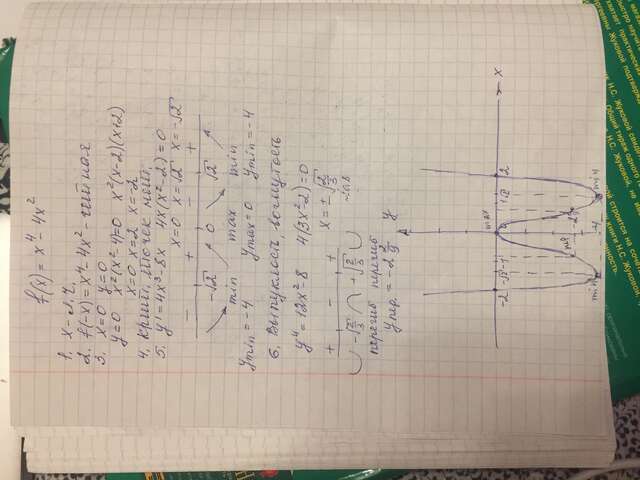 f(x) = x⁴ - 4x²
1. x - л.ч.
2. f(-x) = x⁴ - 4x² - чётная
3. x=0 y=0
y=0 x²(x²-4)=0 x²(x-2)(x+2)
x=0 x=2 x=-2
4. Крит. точек нет.
5. y' = 4x³-8x 4x(x²-2)=0
x=0 x=√2 x=-√2
- + - +
-√2 0 √2
min max min
ymin = -4 ymax = 0 ymin = -4
6. Выпуклость, вогнутость
y'' = 12x²-8 4(3x²-2)=0
+ - + x = ±√(2/3)
-√(2/3) +√(2/3) ≈0,8
перегиб перегиб
yпер. = -2 2/9 y
max
-2 -√2 -1 0 1 √2 2 x
пер -2
min -4 min